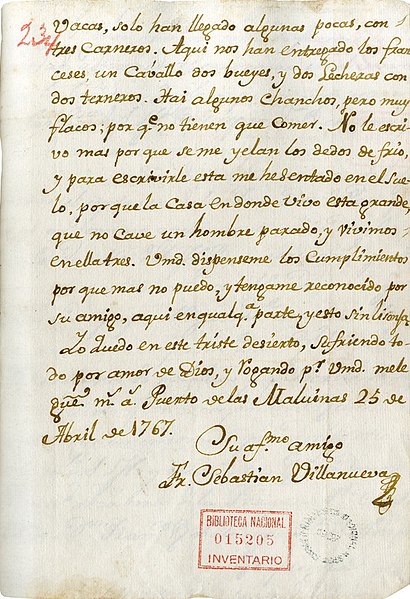 234
Vacas, solo han llegado algunas pocas, con
tres Carneros. Aqui nos han entregado los fran
ceses, un Cavallo dos bueyes, y dos Lecheras con
dos terneros. Hai algunos Chanchos, pero muy
flacos; por q.e no tienen que Comer. No le escri
vo mas por que se me yelan los dedos de frio,
y para escrivirle esta me he dentado en el Sue
lo, por que la Casa en donde vivo esta grande,
que no Cave un hombre parado, y vivimos
en ella tres. Vmd. dispenseme los Cumplimientos
por que mas no puedo, y tengame reconocido por
su amigo, aqui en qualq.a parte, y esto sin lisonja.
Yo quedo en este triste desierto, sufriendo to
do por amor de Dios, y Rogando p.r Vmd. me le
gue m.s a.s Puerto de las Maluinas 25 de
Abril de 1767.
Su af.mo amigo
Fr. Sebastian Villanueva
BIBLIOTECA NACIONAL
015205
INVENTARIO